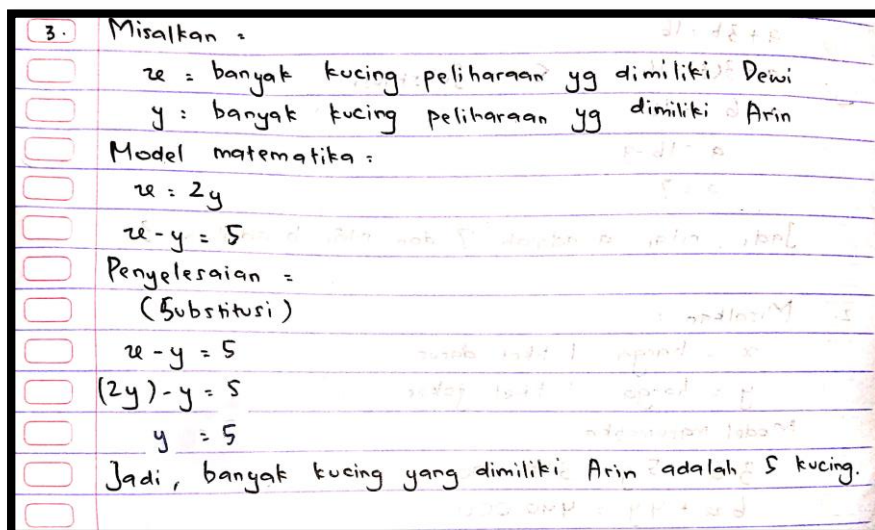 3. Misalkan :
x : banyak kucing peliharaan yg dimiliki Dewi
y : banyak kucing peliharaan yg dimiliki Arin
Model matematika :
x = 2y
x - y = 5
Penyelesaian =
(Substitusi)
x - y = 5
(2y) - y = 5
y = 5
Jadi, banyak kucing yang dimiliki Arin adalah 5 kucing.